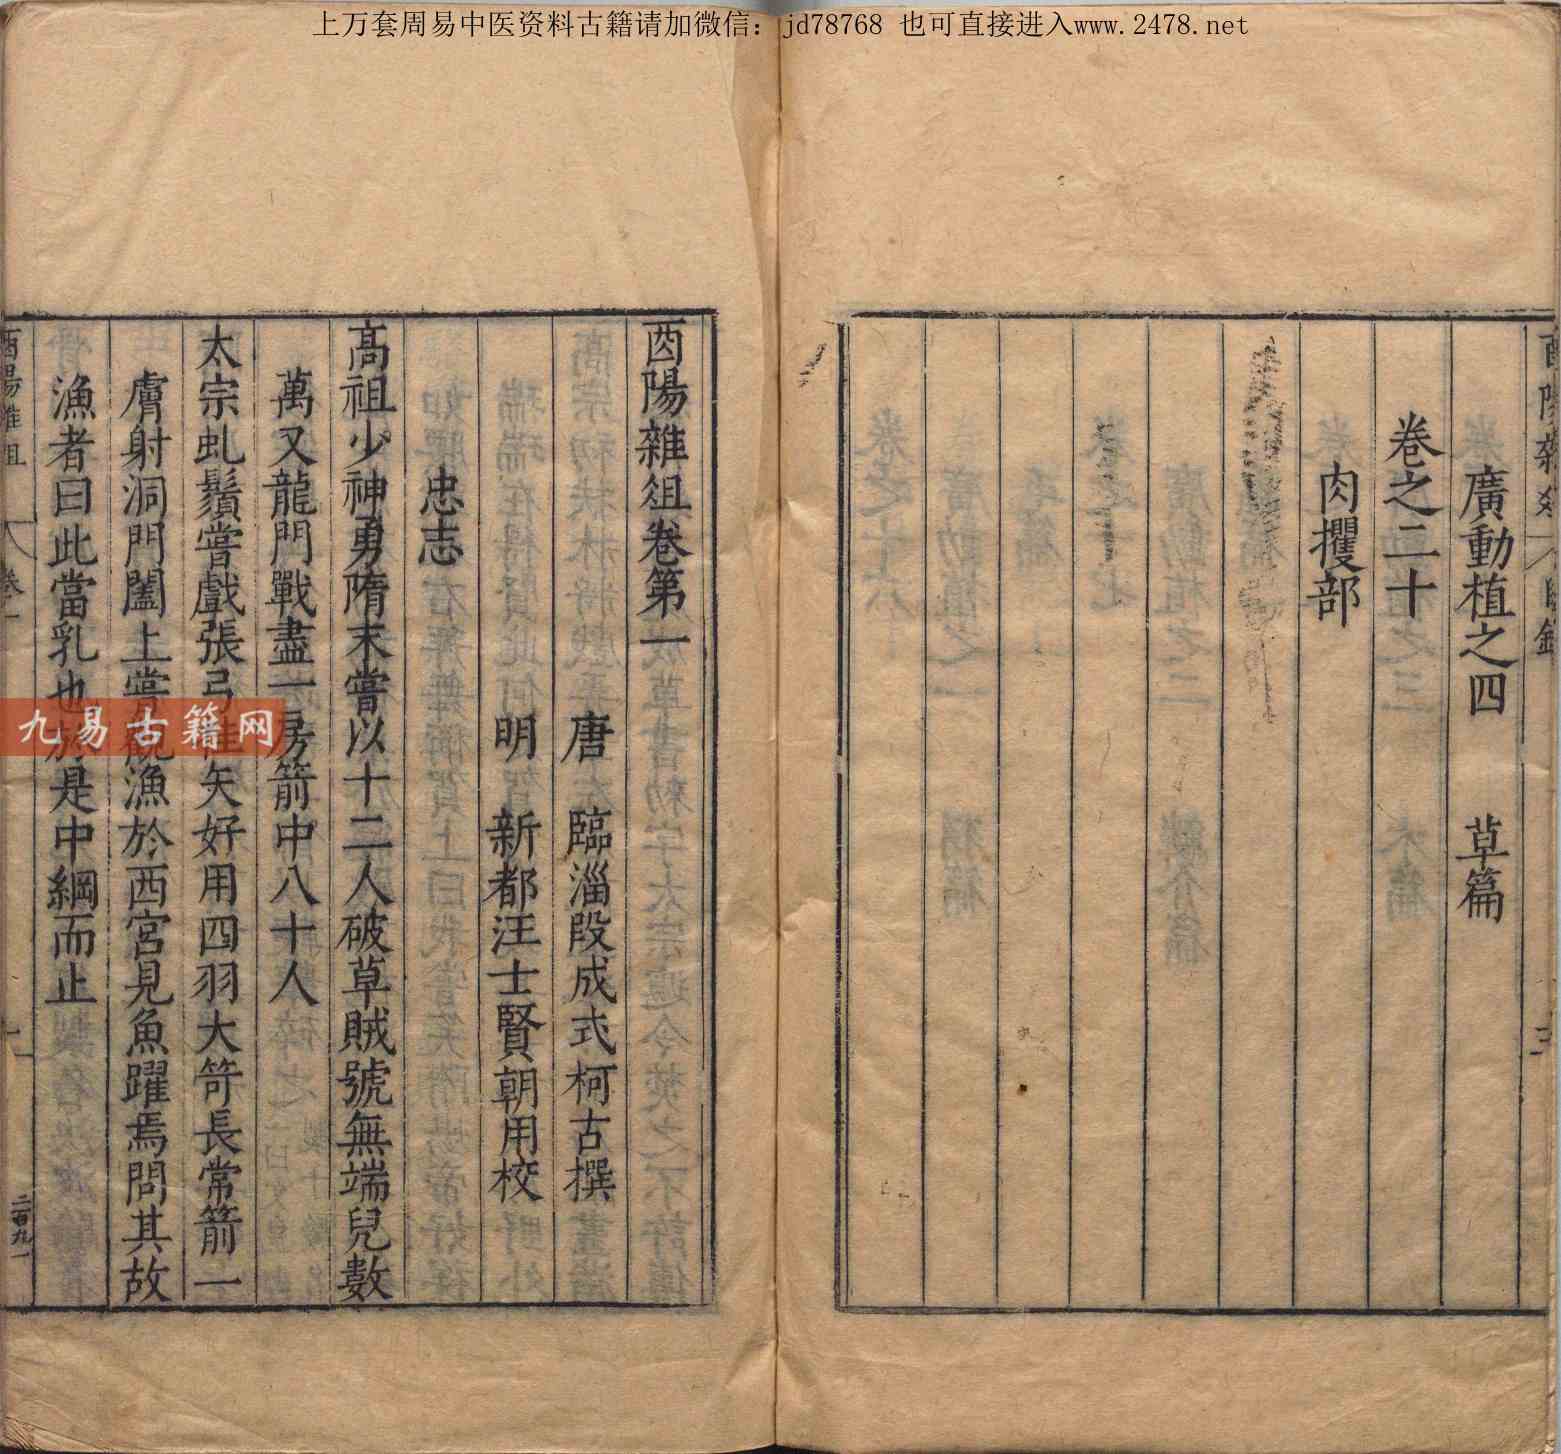 上万套周易中医资料古籍请加微信：jd78768 也可直接进入www.2478.net
廣動植之四 草篇
卷之二十
肉攫部
酉陽雜俎卷第一
唐 臨淄段成式柯古撰
明 新都汪士賢朝用校
忠志
高祖少神勇隋末嘗以十二人破草賊號無端兒數
萬又龍門戰盡一房箭中八十人
太宗虬鬚嘗戲張弓挂矢好用四羽大笴長常箭一
膚射洞門闔上嘗觀漁於西宮見魚躍焉問其故
漁者曰此當乳也於是中綱而止
酉陽雜俎 卷一
二百九一
九易古籍网